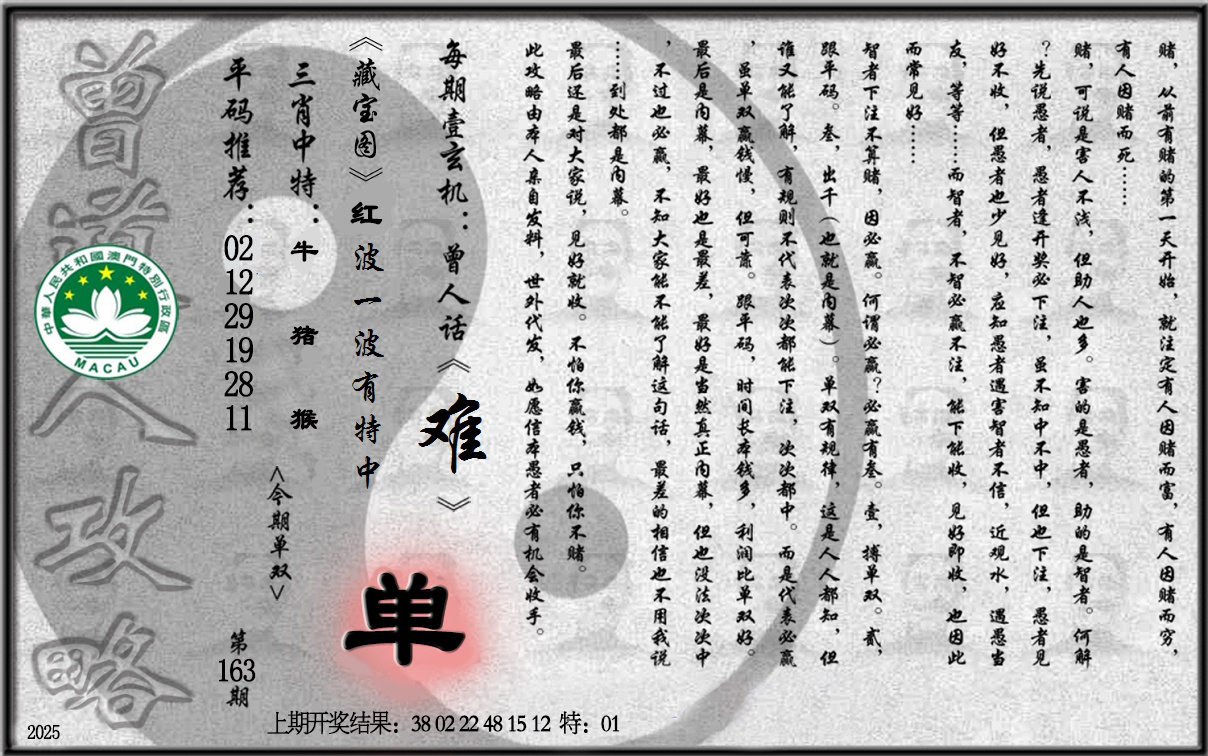 赌，从前有赌的第一天开始，就注定有人因赌而富，有人因赌而穷，
有人因赌而死……
赌，可说是害人不浅，但助人也多。害的是愚者，助的是智者。何解
？先说愚者，愚者逢开奖必下注，虽不知中不中，但也下注，愚者见
好不收，但愚者也少见好，应知愚者遇害智者不信，近观水，遇愚当
友，等等……而智者，不智必赢不注，能下能收，见好即收，也因此
而常见好……
智者下注不算赌，因必赢。何谓必赢？必赢有叁。壹，搏单双。贰，
跟平码。叁，出千（也就是内幕）。单双有规律，这是人人都知，但
谁又能了解，有规则不代表次次都能下注，次次都中。而是代表必赢
，虽单双赢钱慢，但可靠。跟平码，时间长本钱多，利润比单双好。
最后是内幕，最好也是最差，最好是当然真正内幕，但也没法次次中
，不过也必赢，不知大家能不能了解这句话，最差的相信也不用我说
……到处都是内幕。
最后还是对大家说，见好就收。不怕你赢钱，只怕你不赌。
此攻略由本人亲自发料，世外代发，如愿信本愚者必有机会收手。
每期壹玄机：曾人话《难》
《藏宝图》红波一波有特中
单
三肖中特：牛 猪 猴
<今期单双>
平码推荐：02 12 29 19 28 11
第163期
曾道人攻略
中華人民共和國澳門特別行政區
MACAU
2025
上期开奖结果：38 02 22 48 15 12 特：01